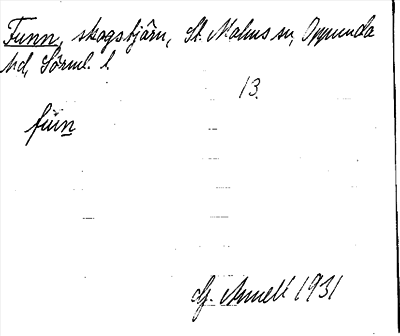 Funn, skogstjärn, St. Malms sn, Oppunda
hd, Sörml. l.
13.
fün
Gf. Annell 1931